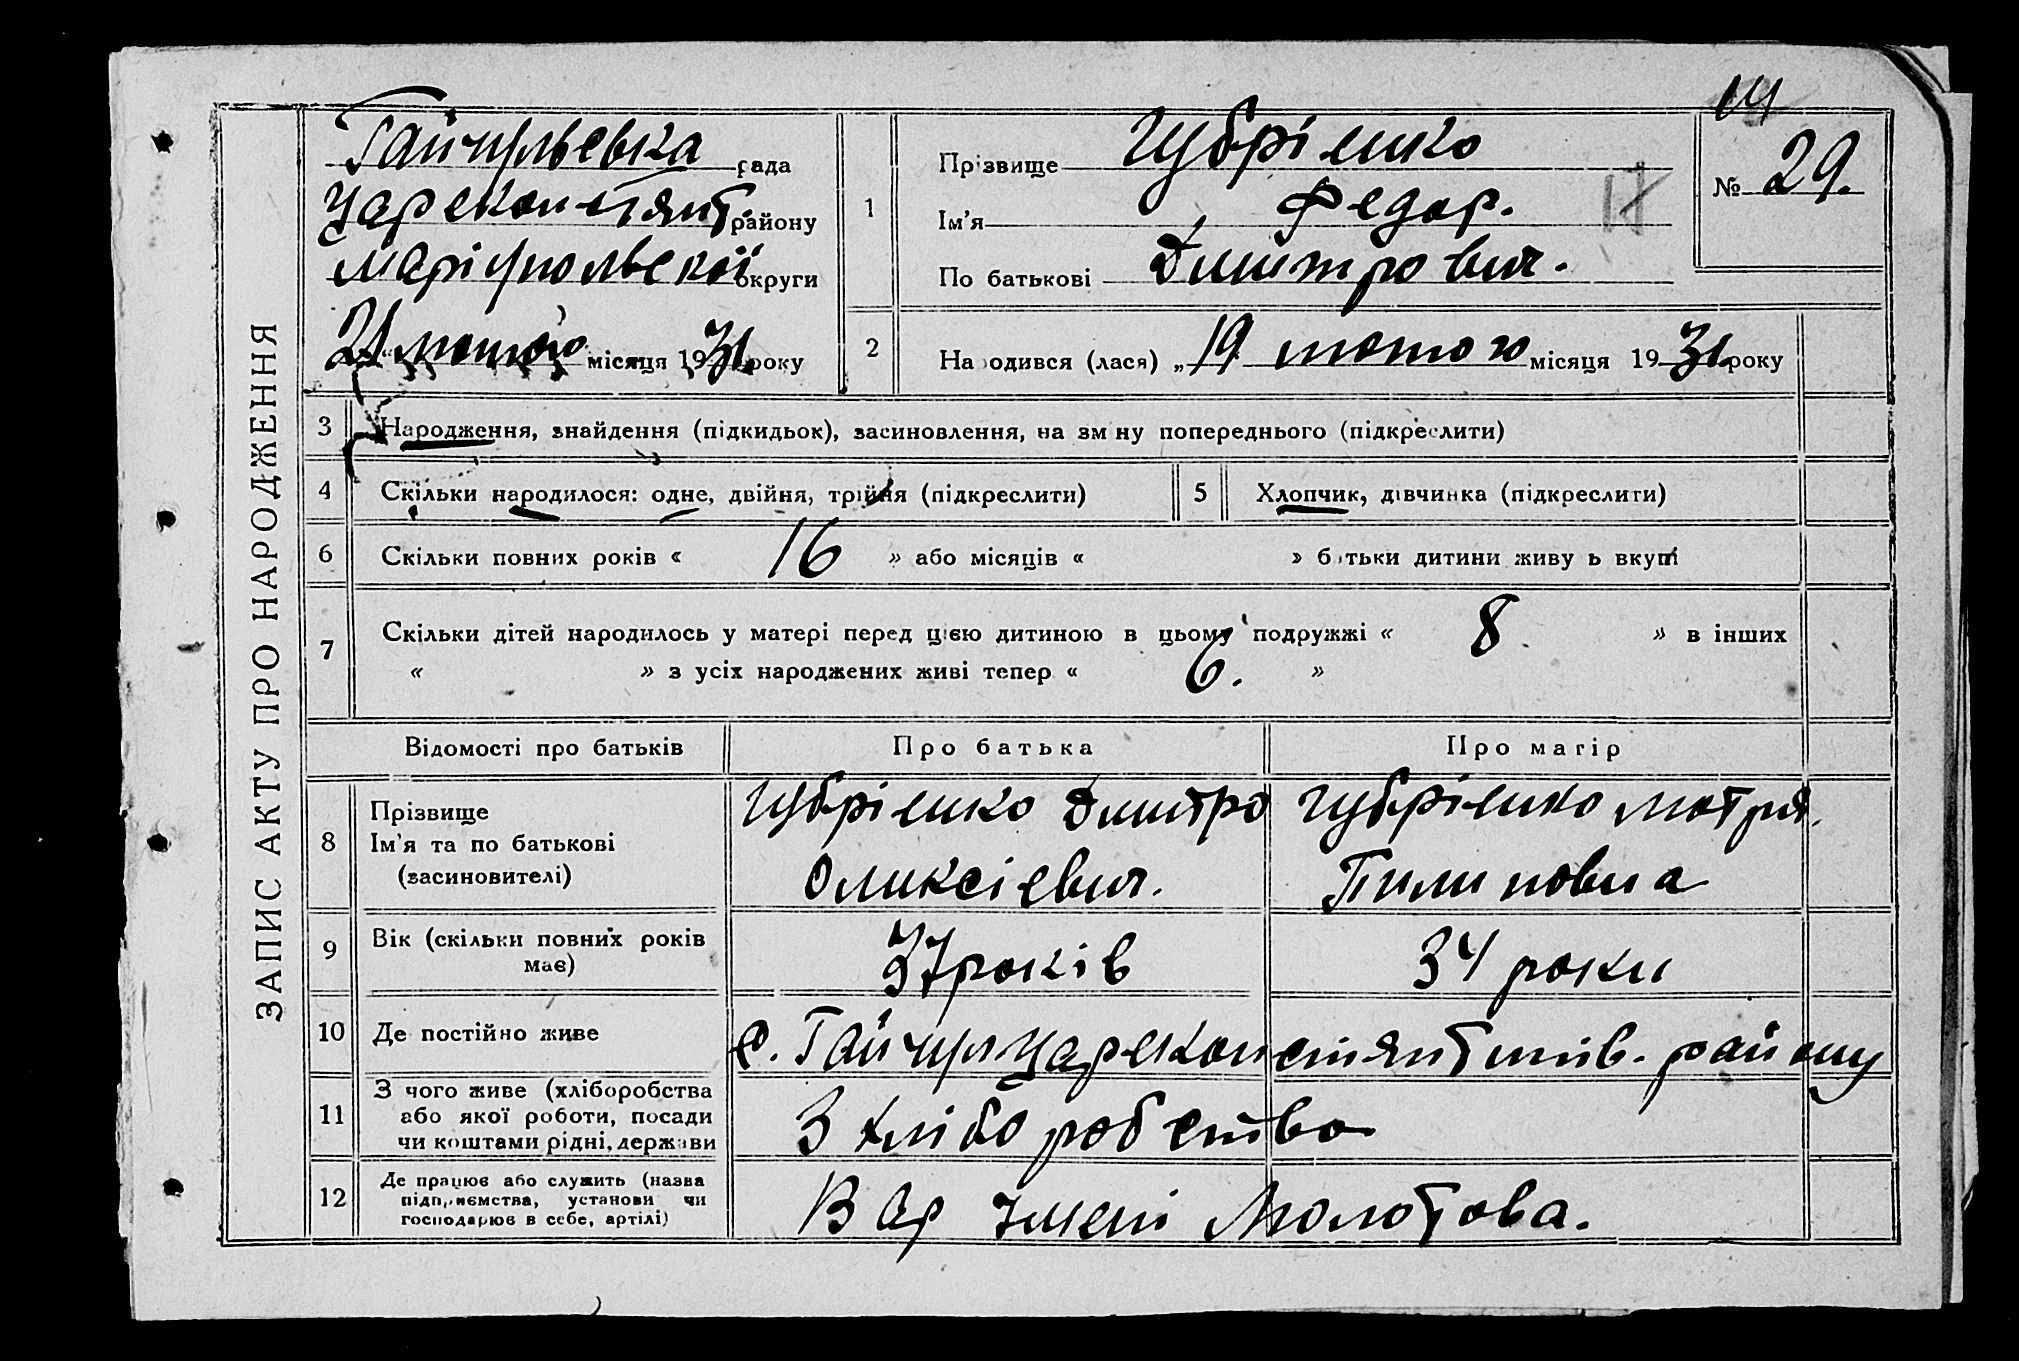 ЗАПИС АКТУ ПРО НАРОДЖЕННЯ
14
Гайчульська рада
Цареконстянт. району
Маріупольської округи
21 лютого місяця 1931 року
1
Прізвище Губрієнко
Ім'я Федор.
17
По батькові Дмитрович.
№ 29.
2
Народився (лася) „19 лютого місяця 1931 року
3 Народження, знайдення (підкидьок), засиновлення, на зміну попереднього (підкреслити)
4 Скільки народилося: одне, двійня, трійня (підкреслити)
5 Хлопчик, дівчинка (підкреслити)
6 Скільки повних років « 16 » або місяців « » батьки дитини живуть вкупі
7 Скільки дітей народилось у матері перед цією дитиною в цьому подружжі « 8. » в інших
« » з усіх народжених живі тепер « 6. »
Відомості про батьків Про батька Про матір
8 Прізвище
Ім'я та по батькові
(засиновителі)
Губрієнко Дмитро
Оликсієвич.
Губрієнко Мотря.
Пилиповна
9 Вік (скільки повних років
має)
37 років
34 роки
10 Де постійно живе
с. Гайчул Цареконстянтинів. району
11 З чого живе (хліборобства
або якої роботи, посади
чи коштами рідні, держави
З хліборобства
12 Де працює або служить (назва
підприємства, установи чи
господарює в себе, артілі)
В ар імені Молотова.